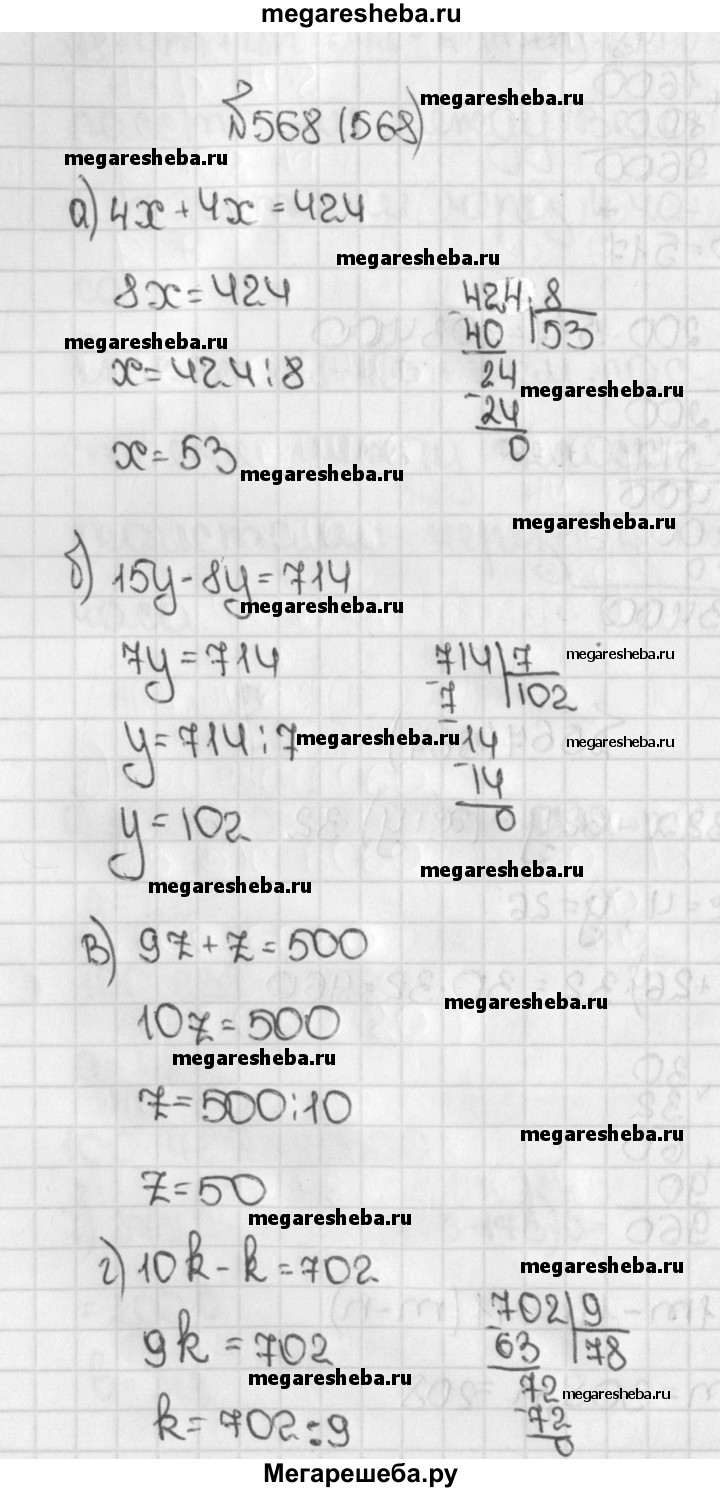 megaresheba.ru
№568 (568) megaresheba.ru
megaresheba.ru
а) 4x + 4x = 424
megaresheba.ru
8x = 424
424 8
megaresheba.ru
40 53
x = 424 : 8
24
megaresheba.ru
24
x = 53
0
megaresheba.ru
megaresheba.ru
б) 15y - 8y = 714
megaresheba.ru
7y = 714
714 7
megaresheba.ru
7 102
y = 714 : 7
megaresheba.ru
14
megaresheba.ru
14
y = 102
0
megaresheba.ru
megaresheba.ru
в) 9z + z = 500
megaresheba.ru
10z = 500
megaresheba.ru
z = 500 : 10
megaresheba.ru
z = 50
megaresheba.ru
г) 10k - k = 702
megaresheba.ru
702 9
9k = 702
63 78
megaresheba.ru
72
megaresheba.ru
k = 702 : 9
72
0
Мегарешеба.ру